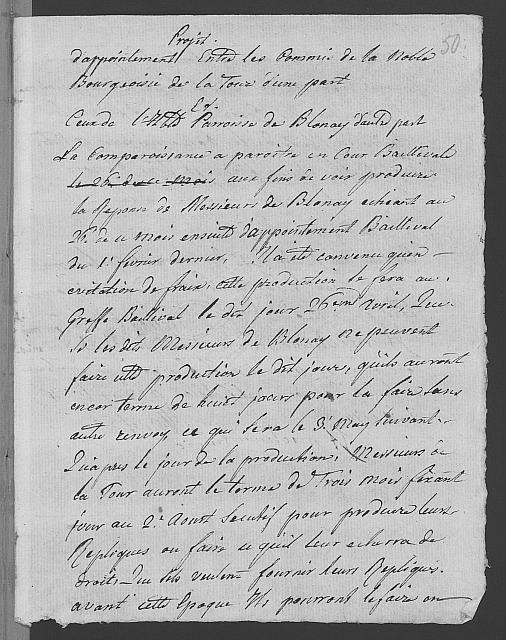 50.
Projet.
d'appointement Entre les Commis de la Noble
Bourgeoisie de la Tour d'une part
Ceux de l'H'ble Parroisse de Blonay d'autre part
La Comparoissance a paroitre en Cour Baillivale
le 26e de ce mois aux fins de voir produire
la Reponse de Messieurs de Blonay echeant au
26e de ce mois ensuite d'appointement Baillival
du 1r fevrier dernier, Il a été convenu qu'en
evitation de fraix, cette production se fera au
Greffe Baillival le dit jour 26eme Avril, Que
Si les dits Messieurs de Blonay ne peuvent
faire cette production le dit jour, qu'ils auront
encor terme de huit jours pour la faire sans
autre renvoy ce qui sera le 3e May suivant.
Qu'apres le jour de la production, Messieurs de
la Tour auront le terme de Trois mois
jour au 2e Aoust Secutif pour produire leurs
Repliques ou faire ce qu'il leur echerra de
droit, Que s'ils veulent fournir leurs Repliques
avant cette Epoque Ils pourront le faire en